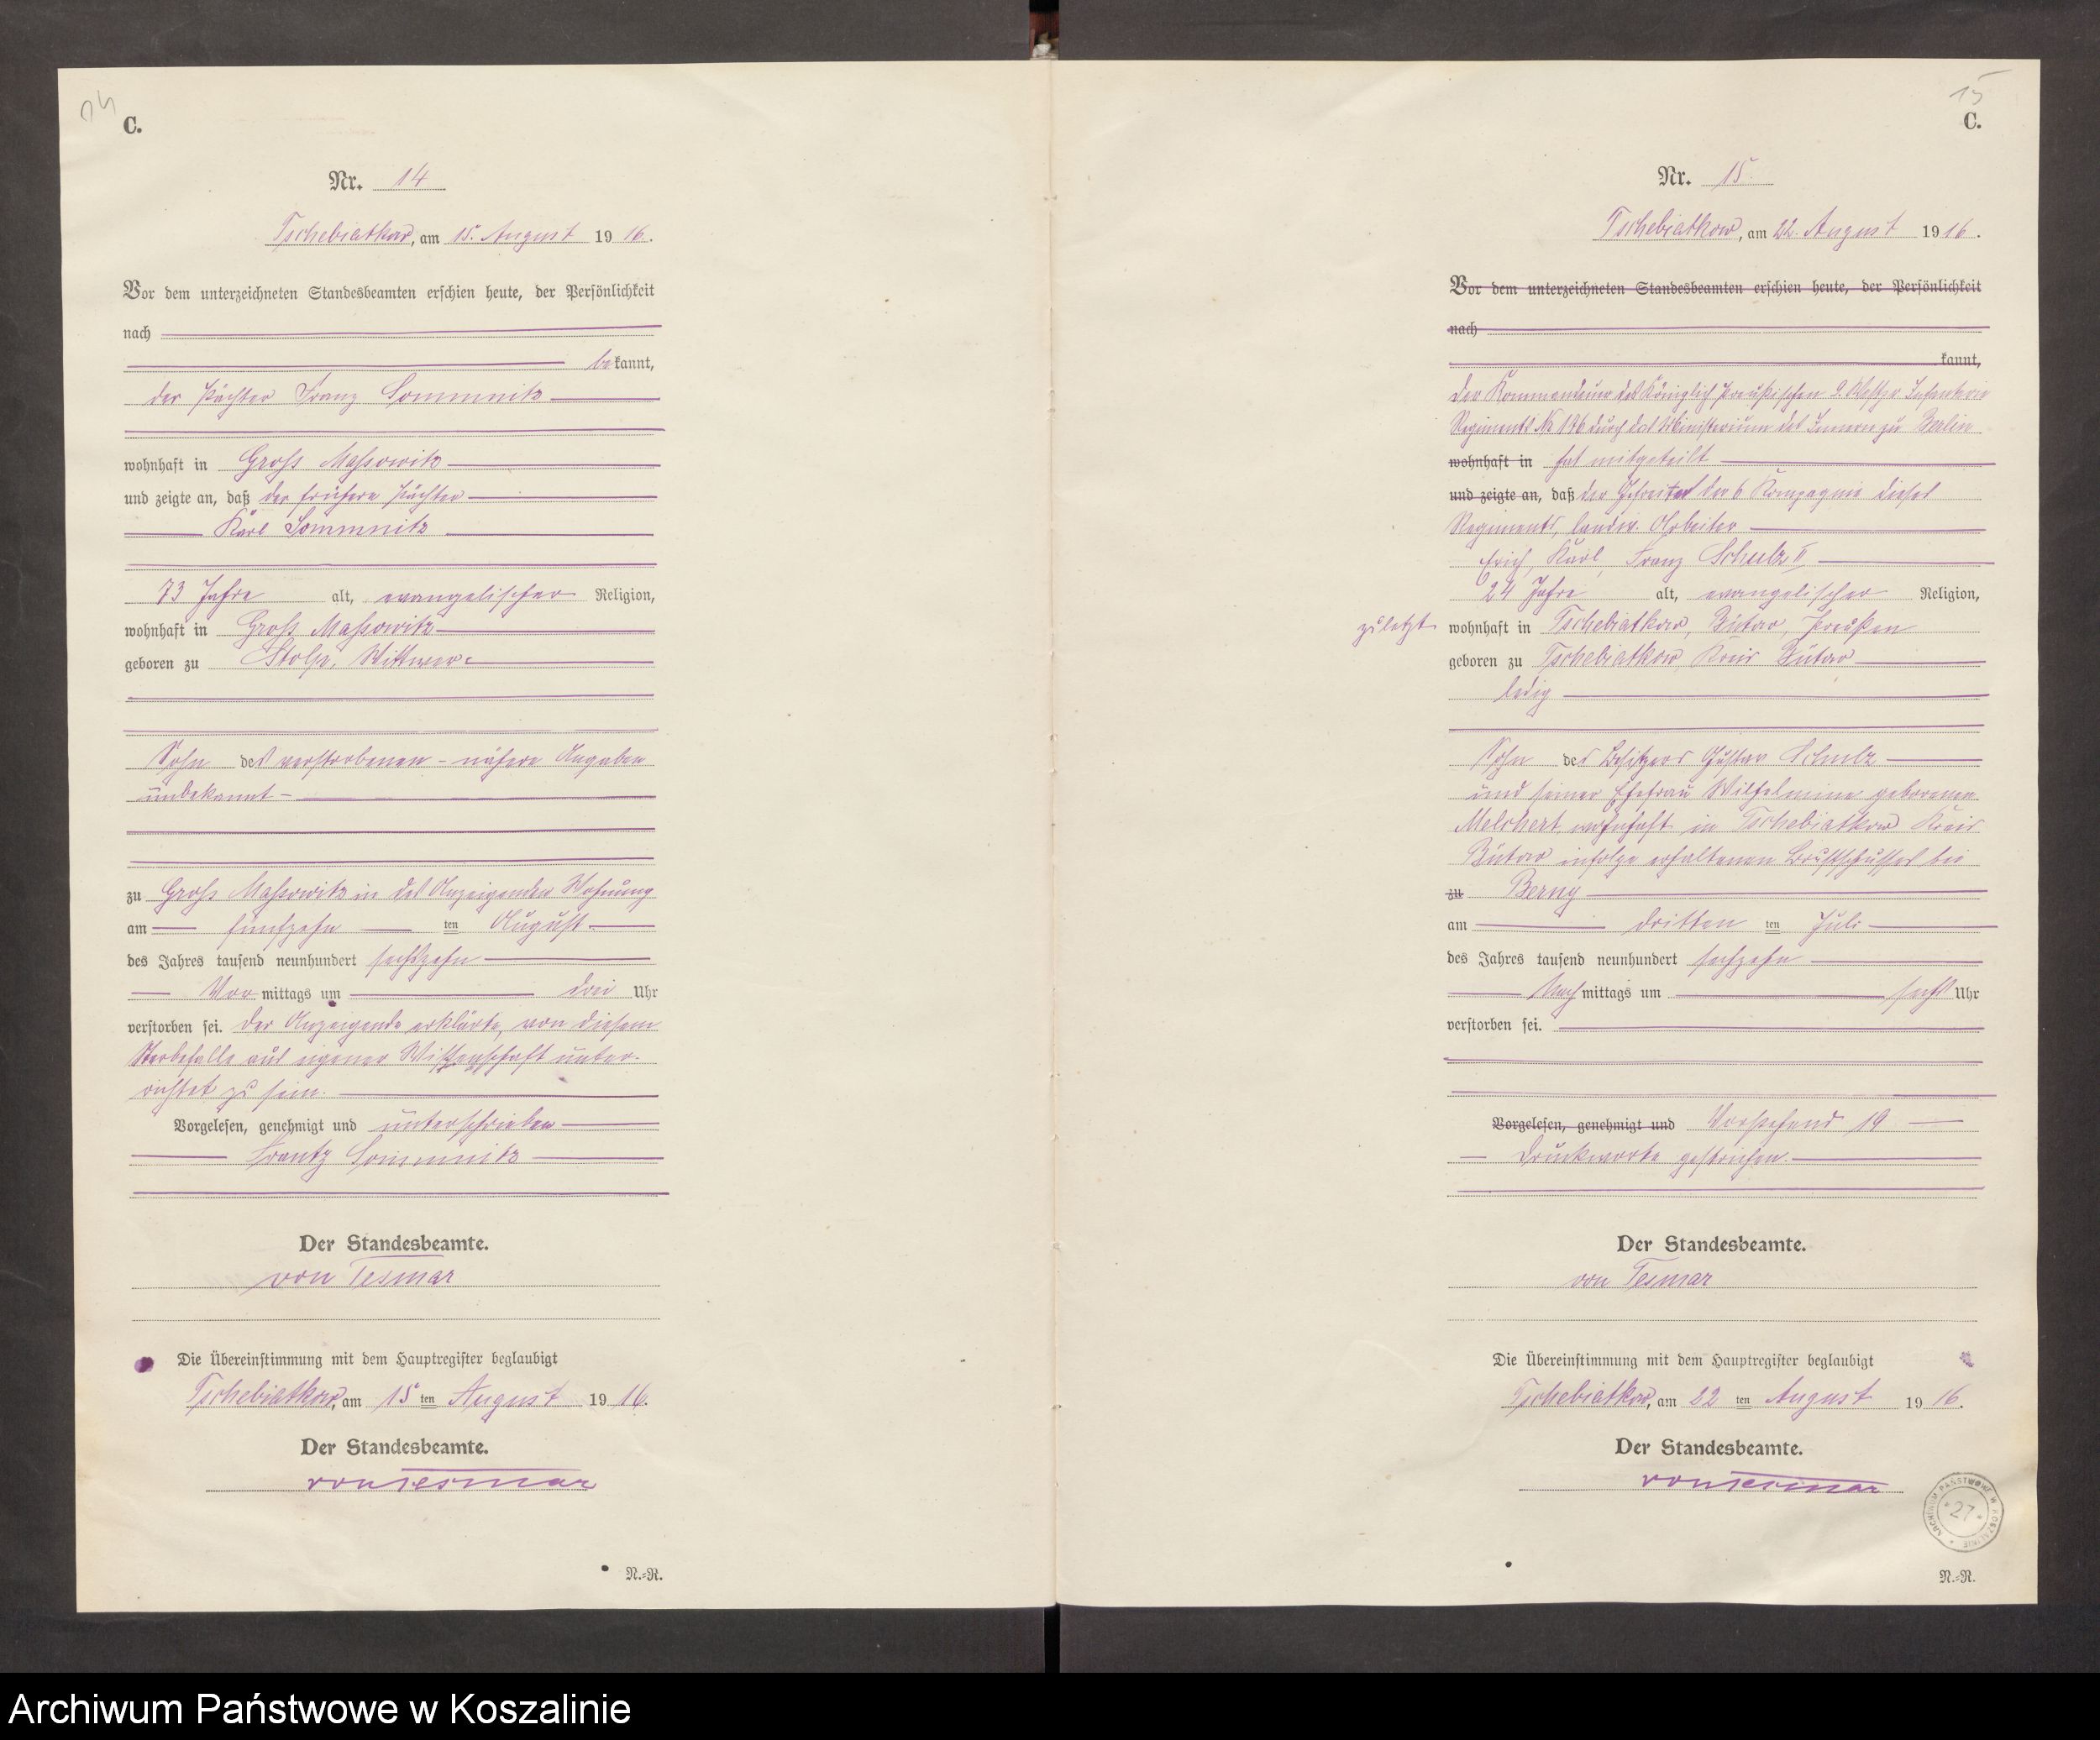 14
C.
Nr. 14
Tschebiatkow, am 15. August 1916.
Vor dem unterzeichneten Standesbeamten erschien heute, der Persönlichkeit
nach
bekannt,
der Pächter Franz Sommnitz
wohnhaft in Gross Massowitz
und zeigte an, daß der frühere Pächter
Karl Sommnitz
73 Jahre alt, evangelischer Religion,
wohnhaft in Gross Massowitz
geboren zu Stolp, Wittwer
Sohn des verstorbenen – nähere Angaben
unbekannt –
zu Gross Massowitz in des Anzeigenden Wohnung
am fünfzehn ten August
des Jahres tausend neunhundert sechszehn
Vor mittags um drei Uhr
verstorben sei. Der Anzeigende erklärte, von diesem
Sterbefalle aus eigener Wissenschaft unter-
richtet zu sein.
Vorgelesen, genehmigt und unterschrieben
Frantz Sommnitz
Der Standesbeamte.
von Tesmar
Die Übereinstimmung mit dem Hauptregister beglaubigt
Tschebiatkow, am 15 ten August 1916.
Der Standesbeamte.
von Tesmar
N.-R.
15
C.
Nr. 15.
Tschebiatkow, am 22. August 1916.
Vor dem unterzeichneten Standesbeamten erschien heute, der Persönlichkeit
nach
kannt,
Der Kommandeur des Königlich Preußischen 9. Westpr. Infanterie
Regiments No 176 durch das Ministerium des Innern zu Berlin
wohnhaft in hat mitgeteilt
und zeigte an, daß der Gefreite der 6 Kompagnie dieses
Regiments, landw. Arbeiter
Erich, Karl, Franz Schulz II
24 Jahre alt, evangelischer Religion,
zuletzt wohnhaft in Tschebiatkow, Bütow, Preußen
geboren zu Tschebiatkow Kreis Bütow
ledig
Sohn des Besitzers Gustav Schulz
und seiner Ehefrau Wilhelmine geborenen
Melchert wohnhaft in Tschebiatkow Kreis
Bütow infolge erhaltenen Brustschusses bei
zu Berny
am dritten ten Juli
des Jahres tausend neunhundert sechzehn
Nach mittags um sechs Uhr
verstorben sei.
Vorgelesen, genehmigt und Vorstehend 19
Druckworte gestrichen.
Der Standesbeamte.
von Tesmar
Die Übereinstimmung mit dem Hauptregister beglaubigt
Tschebiatkow, am 22 ten August 1916.
Der Standesbeamte.
von Tesmar
ARCHIWUM PAŃSTWOWE W KOSZALINIE
* 27 *
N.-R.
Archiwum Państwowe w Koszalinie